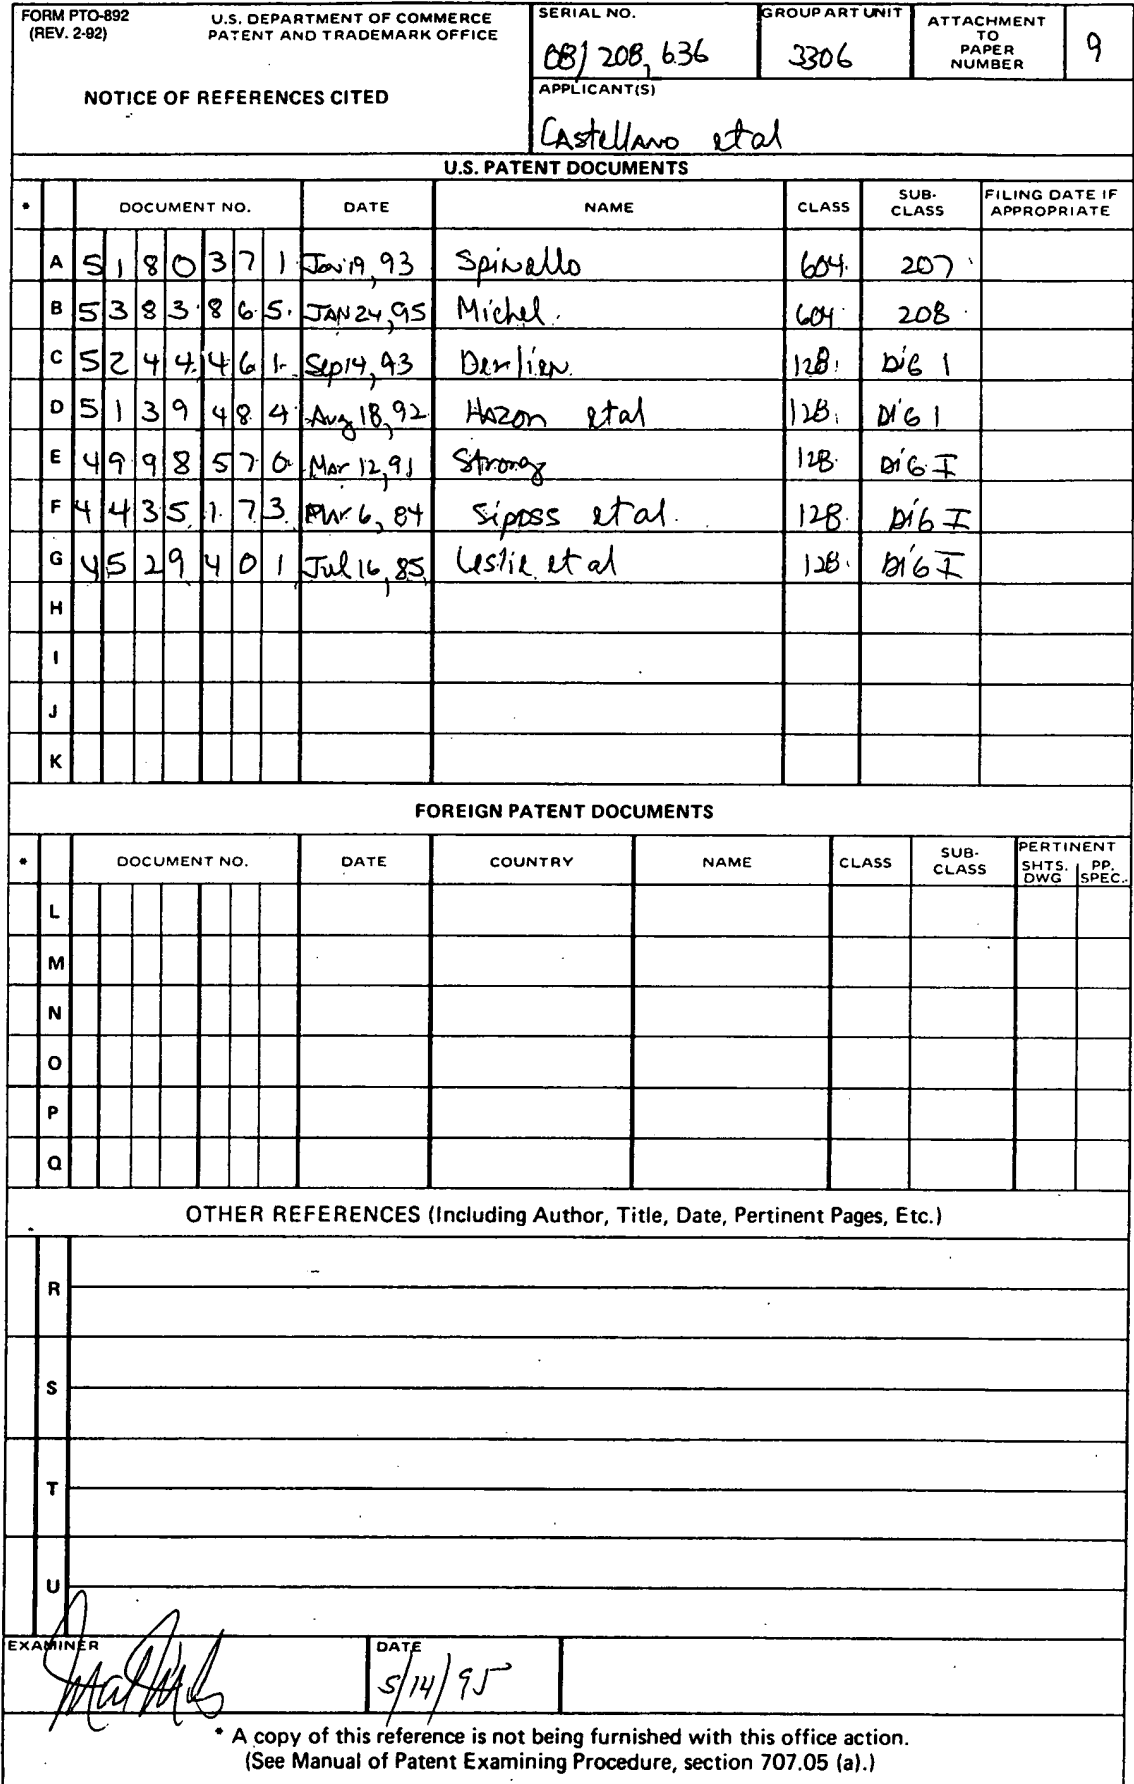 FORM PTO-892
(REV. 2-92)
U.S. DEPARTMENT OF COMMERCE
PATENT AND TRADEMARK OFFICE
NOTICE OF REFERENCES CITED
SERIAL NO.
08/208,636
GROUP ART UNIT
3306
ATTACHMENT
TO
PAPER
NUMBER
9
APPLICANT(S)
Castellano et al
U.S. PATENT DOCUMENTS
* DOCUMENT NO. DATE NAME CLASS SUB-CLASS FILING DATE IF APPROPRIATE
A 5180371 Jan 19, 93 Spinello 604 207
B 5383865 JAN 24, 95 Michel 604 208
C 5244461 Sep 14, 93 Derlien 128 Dig 1
D 5139484 Aug 18, 92 Hazon et al 128 Dig 1
E 4998570 Mar 12, 91 Strong 128 Dig I
F 4435173 Mar 6, 84 Siposs et al. 128 Dig I
G 4529401 Jul 16, 85 Leslie et al 128 Dig I
H
I
J
K
FOREIGN PATENT DOCUMENTS
* DOCUMENT NO. DATE COUNTRY NAME CLASS SUB-CLASS PERTINENT SHTS. DWG PP. SPEC.
L
M
N
O
P
Q
OTHER REFERENCES (Including Author, Title, Date, Pertinent Pages, Etc.)
R
S
T
U
EXAMINER
DATE
5/14/95
* A copy of this reference is not being furnished with this office action.
(See Manual of Patent Examining Procedure, section 707.05 (a).)